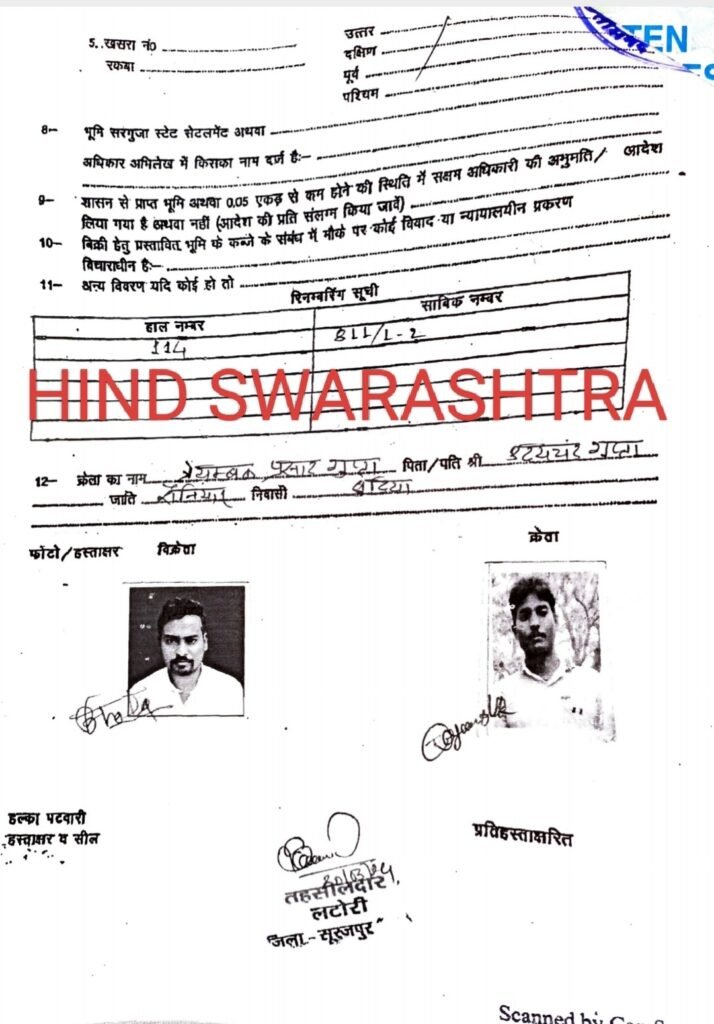 TEN
5. खसरा नं०
रकबा
उत्तर
दक्षिण
पूर्व
पश्चिम
8— भूमि सरगुजा स्टेट सेटलमेंट अथवा
अधिकार अभिलेख में किसका नाम दर्ज है:—
9— शासन से प्राप्त भूमि अथवा 0.05 एकड़ से कम होने की स्थिति में सक्षम अधिकारी की अभुमति/ आदेश
लिया गया है अथवा नहीं (आदेश की प्रति संलग्न किया जावें)
10— बिक्री हेतु प्रस्तावित भूमि के कब्जे के संबंध में मौके पर कोई विवाद या न्यायालयीन प्रकरण
विचाराधीन है:—
11— अन्य विवरण यदि कोई हो तो
रिनम्बरिंग सूची
हाल नम्बर साबिक नम्बर
114 811/1-2
HIND SWARASHTRA
12— क्रेता का नाम त्रैयम्बक प्रसाद गुप्ता पिता/पति श्री उदयचंद गुप्ता
जाति निवासी
फोटो/हस्ताक्षर विक्रेता क्रेता
हल्का पटवारी
हस्ताक्षर व सील
प्रतिहस्ताक्षरित
तहसीलदार,
लटोरी
जिला.- सूरजपुर
Scanned by